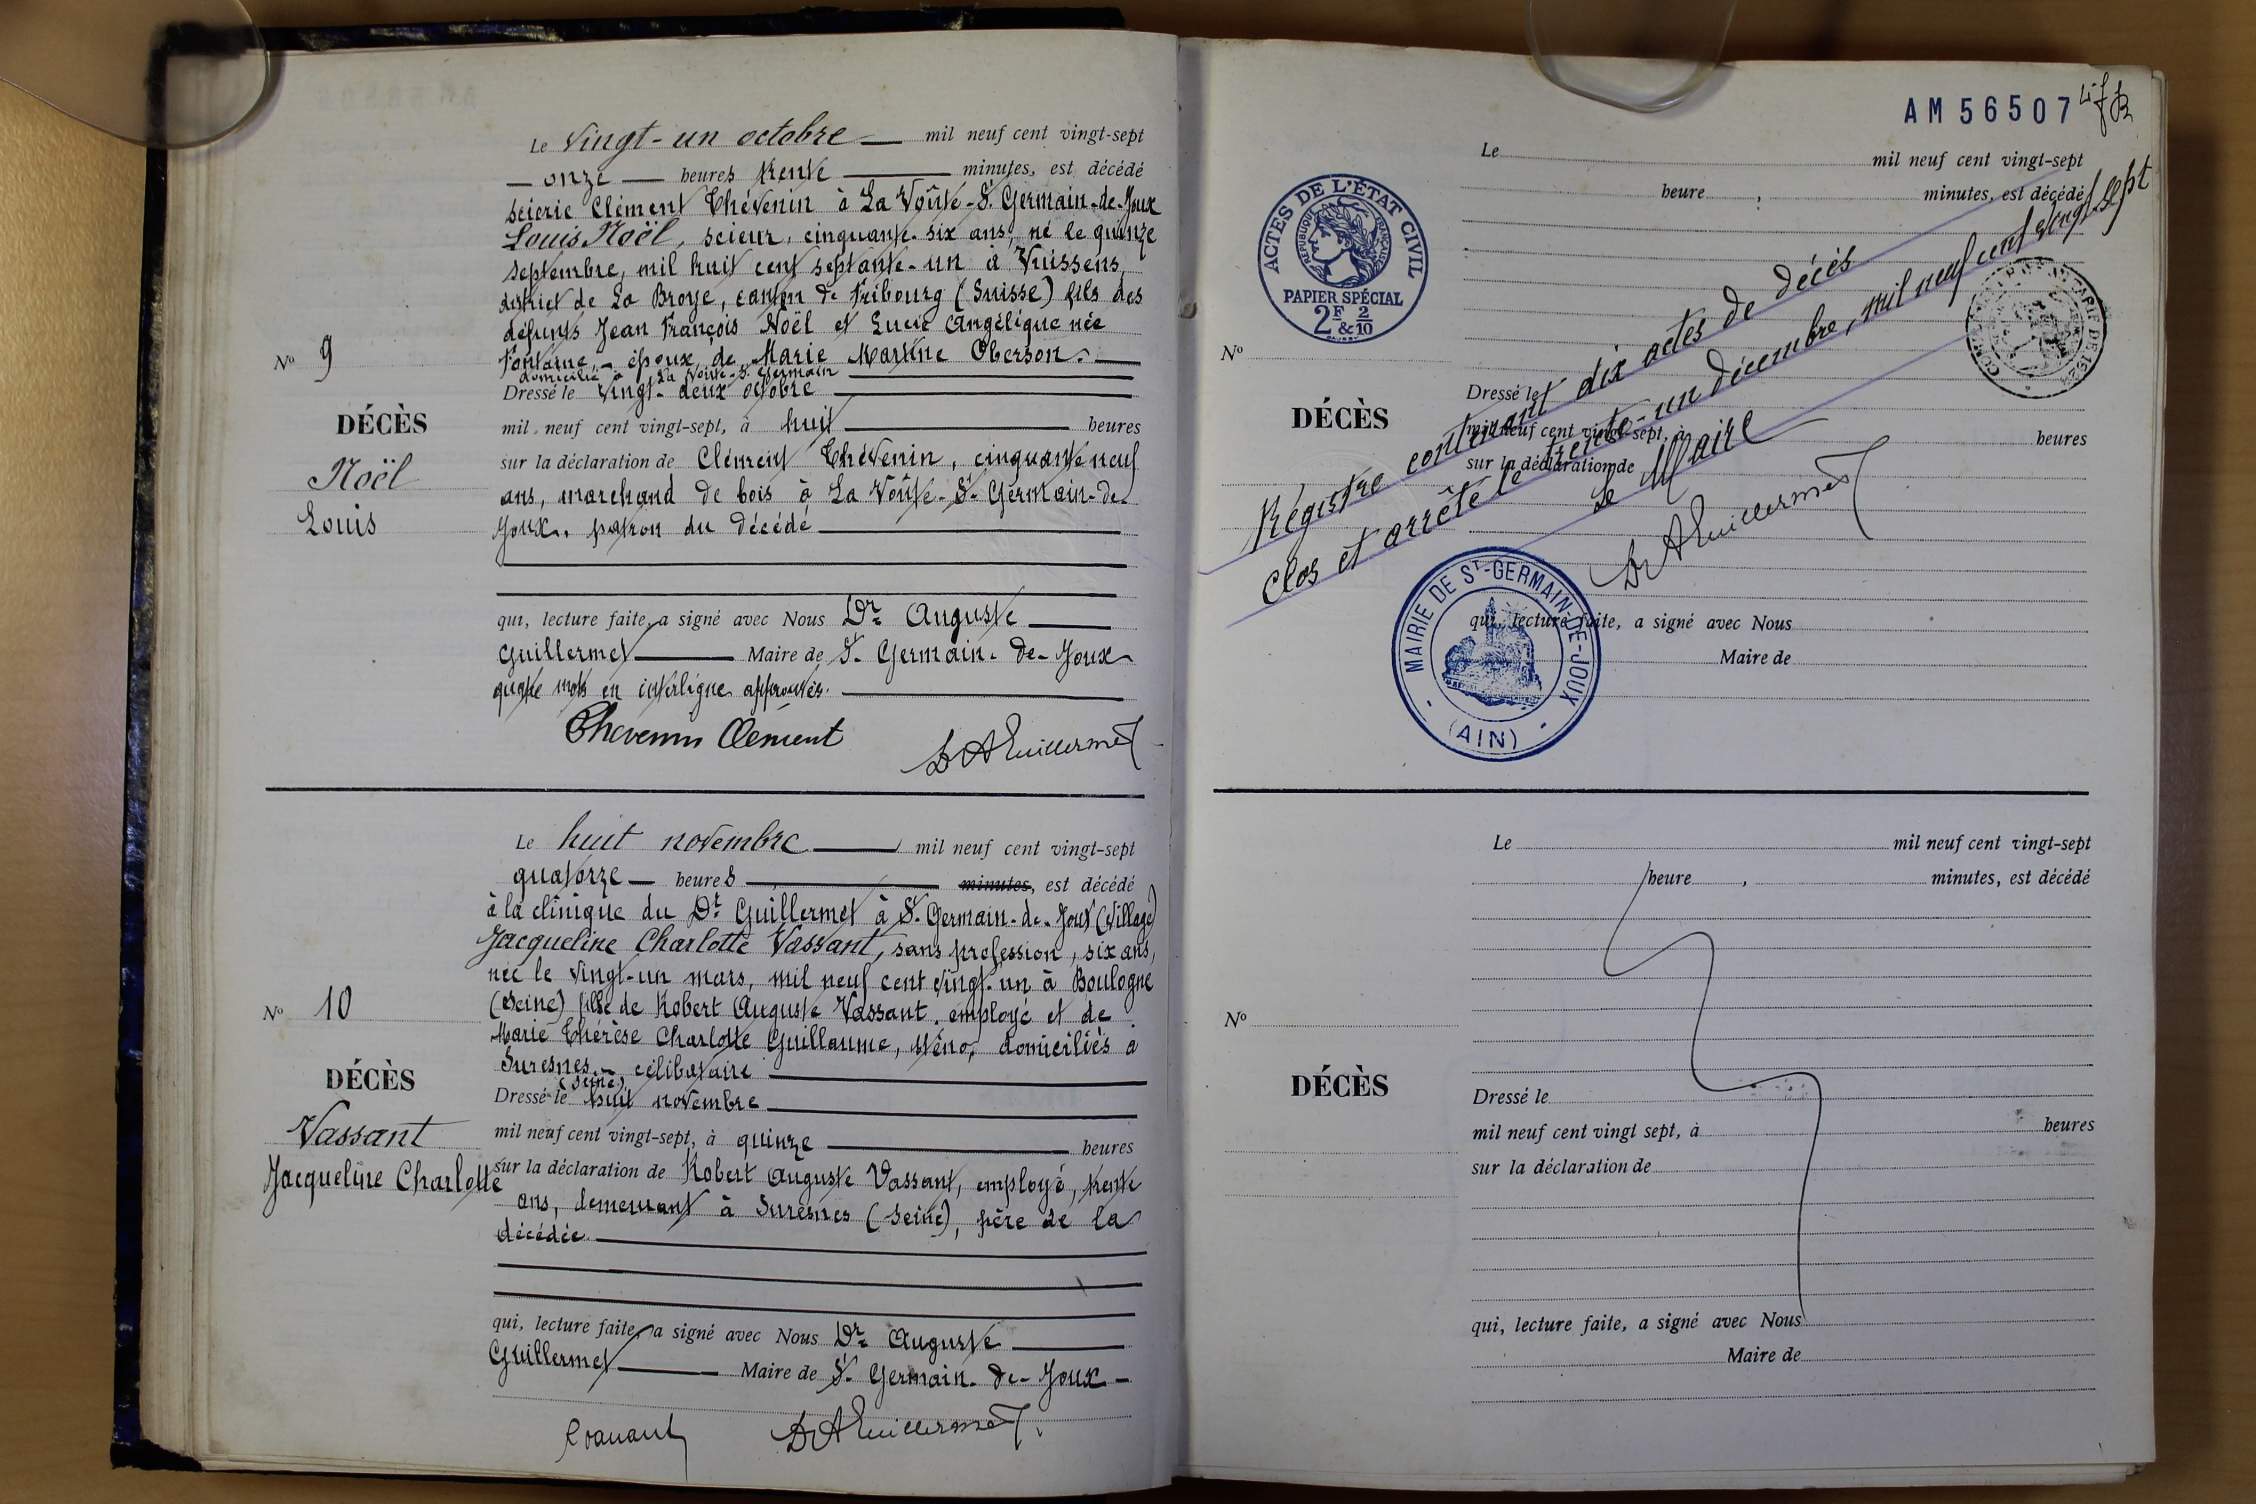 Le vingt-un octobre — mil neuf cent vingt-sept
— onze — heures trente — minutes, est décédé
scierie Clément Thévenin à La Voûte-St Germain-de-Joux
Louis Noël, scieur, cinquante-six ans, né le quinze
septembre, mil huit cent septante-un à Vuissens,
district de La Broye, canton de Fribourg (Suisse) fils des
défunts Jean François Noël et Lucie Angélique née
Fontaine, - époux de Marie Martine Oberson. —
domicilié à La Voûte-St Germain
Dressé le vingt-deux octobre
mil neuf cent vingt-sept, à huit — heures
sur la déclaration de Clément Thévenin, cinquante neuf
ans, marchand de bois à La Voûte-St-Germain-de-
Joux. patron du décédé
qui, lecture faite, a signé avec Nous Dr Auguste
Guillermet — Maire de St-Germain-de-Joux
quatre mots en interligne approuvés.
Thevenin Clément
Dr A Guillermet
No 9
DÉCÈS
Noël
Louis
Le huit novembre — mil neuf cent vingt-sept
quatorze — heures — minutes, est décédé
à la clinique du Dr Guillermet à St-Germain-de-Joux (Village)
Jacqueline Charlotte Vassant, sans profession, six ans,
née le vingt-un mars, mil neuf cent vingt-un à Boulogne
(Seine) fille de Robert Auguste Vassant, employé et de
Marie Thérèse Charlotte Guillaume, domiciliés à
Suresnes - célibataire
(Seine)
Dressé le huit novembre
mil neuf cent vingt-sept, à quinze — heures
sur la déclaration de Robert Auguste Vassant, employé, trente
ans, demeurant à Suresnes (Seine), père de la
décédée.
qui, lecture faite, a signé avec Nous Dr Auguste
Guillermet — Maire de St-Germain-de-Joux
Dr A Guillermet
No 10
DÉCÈS
Vassant
Jacqueline Charlotte
AM 56507
ACTES DE L'ÉTAT CIVIL
RÉPUBLIQUE FRANÇAISE
PAPIER SPÉCIAL
2F & 2/10
Le mil neuf cent vingt-sept
heure , minutes, est décédé
No
DÉCÈS
Dressé le
mil neuf cent vingt-sept, à heures
sur la déclaration de
qui, lecture faite, a signé avec Nous
Maire de
Régistre contenant dix actes de décès
clos et arrêté le trente-un décembre, mil neuf cent vingt-sept
Le Maire
Dr A Guillermet
MAIRIE DE ST-GERMAIN-DE-JOUX
(AIN)
Le mil neuf cent vingt-sept
heure , minutes, est décédé
No
DÉCÈS
Dressé le
mil neuf cent vingt sept, à heures
sur la déclaration de
qui, lecture faite, a signé avec Nous
Maire de